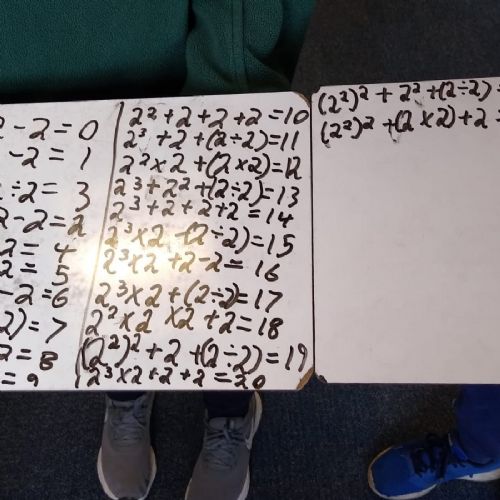 2 - 2 = 0
- 2 = 1
÷ 2 = 3
2 - 2 = 2
2 = 4
2 = 5
- 2 = 6
2) = 7
2 = 8
= 9
2² + 2 + 2 + 2 = 10
2³ + 2 + (2 ÷ 2) = 11
2² × 2 + (2 × 2) = 12
2³ + 2² + (2 ÷ 2) = 13
2³ + 2 + 2 + 2 = 14
2³ × 2 - (2 ÷ 2) = 15
2³ × 2 + 2 - 2 = 16
2³ × 2 + (2 ÷ 2) = 17
2² × 2 × 2 + 2 = 18
(2²)² + 2 + (2 ÷ 2) = 19
2³ × 2 + 2 + 2 = 20
(2²)² + 2² + (2 ÷ 2) =
(2²)² + (2 × 2) + 2 =